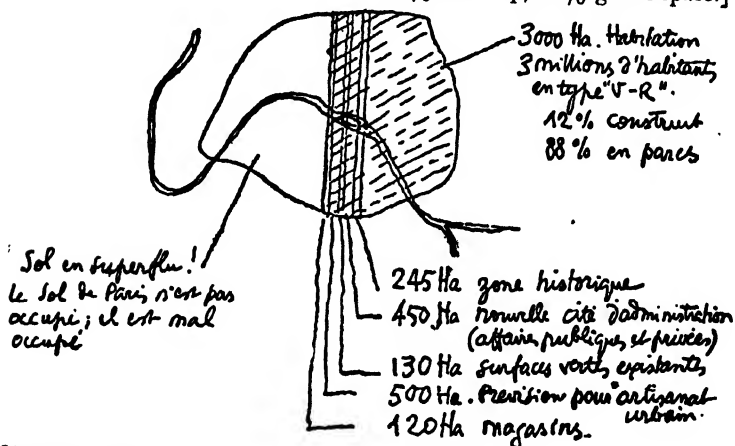 3000 Ha. Habitation
3 millions d'habitants
en type "V-R".
12% construit
88% en parcs
Sol en superflu!
le Sol de Paris n'est pas
occupé; il est mal
occupé
245 Ha zone historique
450 Ha nouvelle cité d'administration
(affaires publiques et privées)
130 Ha surfaces vertes existantes
500 Ha. Prévision pour artisanat
urbain.
120 Ha magasins.